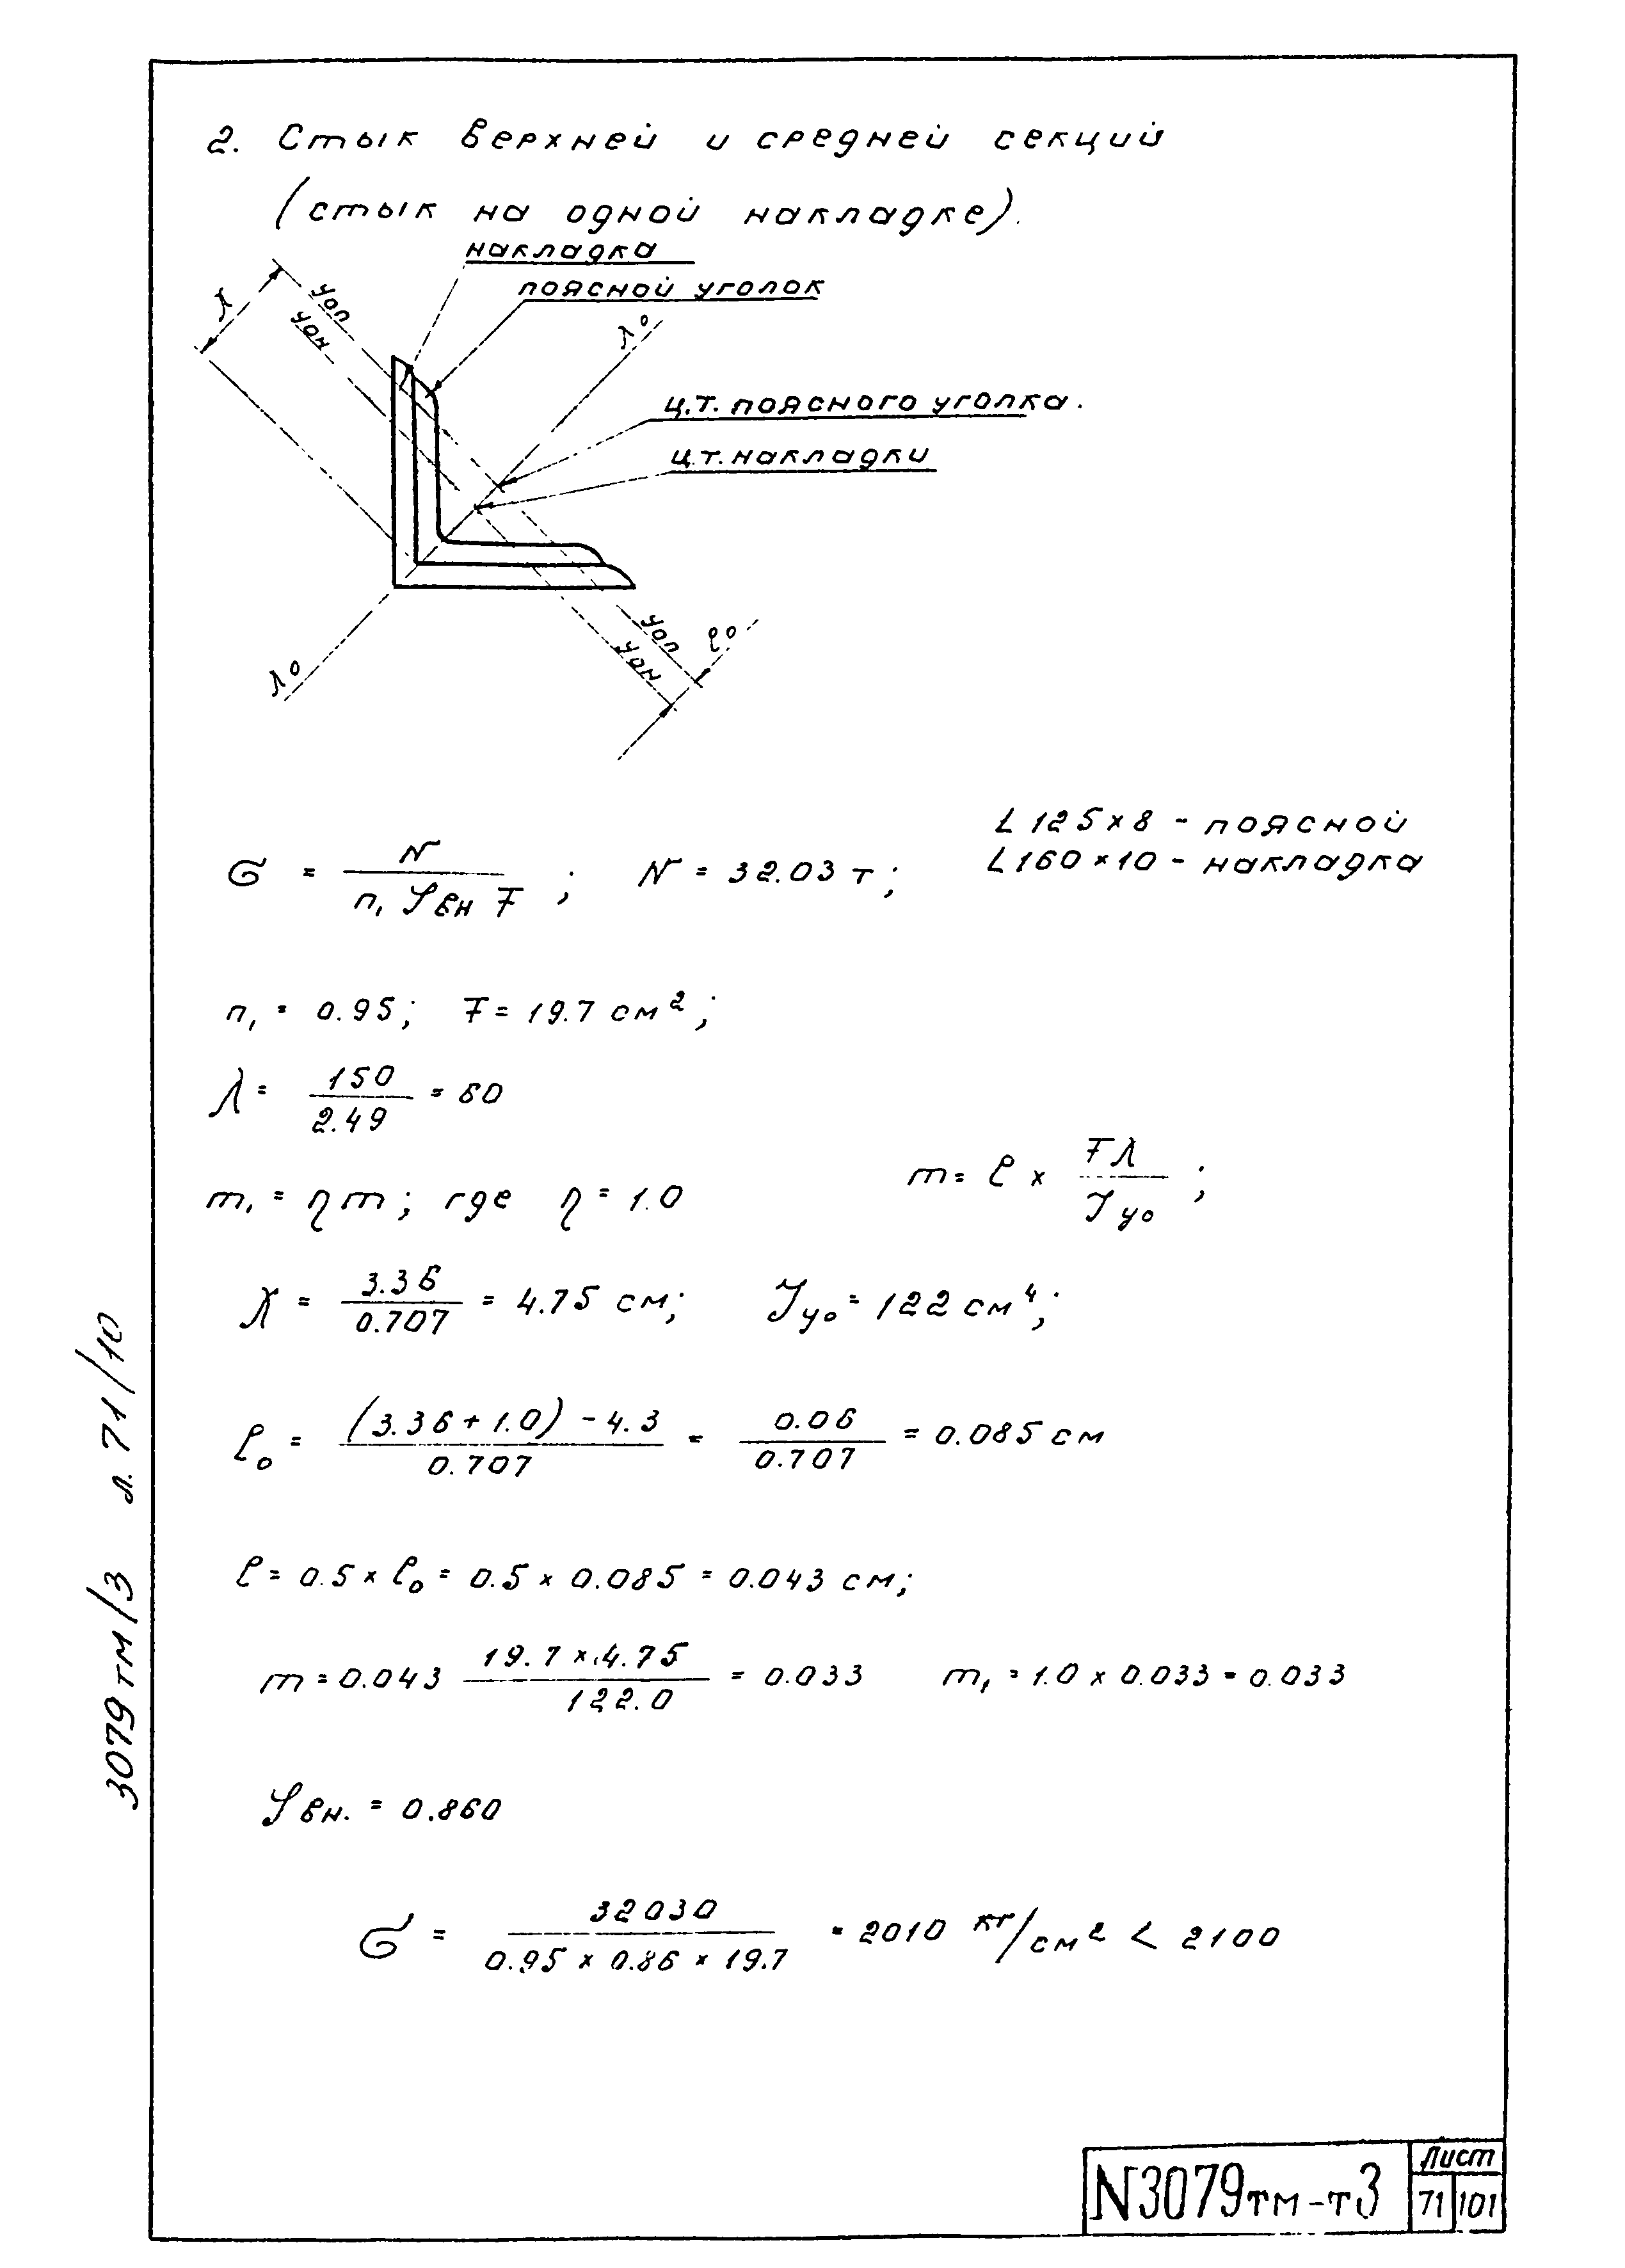 2. Стык верхней и средней секций
(стык на одной накладке).
накладка
поясной уголок
X
Уоп
Уон
X⁰
ц.т. поясного уголка.
ц.т. накладки
Уоп
Уон
е⁰
X⁰
L 125×8 - поясной
L 160×10 - накладка
σ = N / n₁ φвн F ; N = 32.03 т;
n₁ = 0.95; F = 19.7 см²;
λ = 150 / 2.49 = 60
m₁ = η m; где η = 1.0 m = e × Fλ / Jyo ;
X = 3.36 / 0.707 = 4.75 см; Jyo = 122 см⁴;
e₀ = (3.36 + 1.0) - 4.3 / 0.707 = 0.06 / 0.707 = 0.085 см
e = 0.5 × e₀ = 0.5 × 0.085 = 0.043 см;
m = 0.043 19.7 × 4.75 / 122.0 = 0.033 m₁ = 1.0 × 0.033 = 0.033
φвн. = 0.860
σ = 32030 / 0.95 × 0.86 × 19.7 = 2010 кг/см² < 2100
3079тм/3 л. 71/10
N3079тм-т3
Лист
71 101